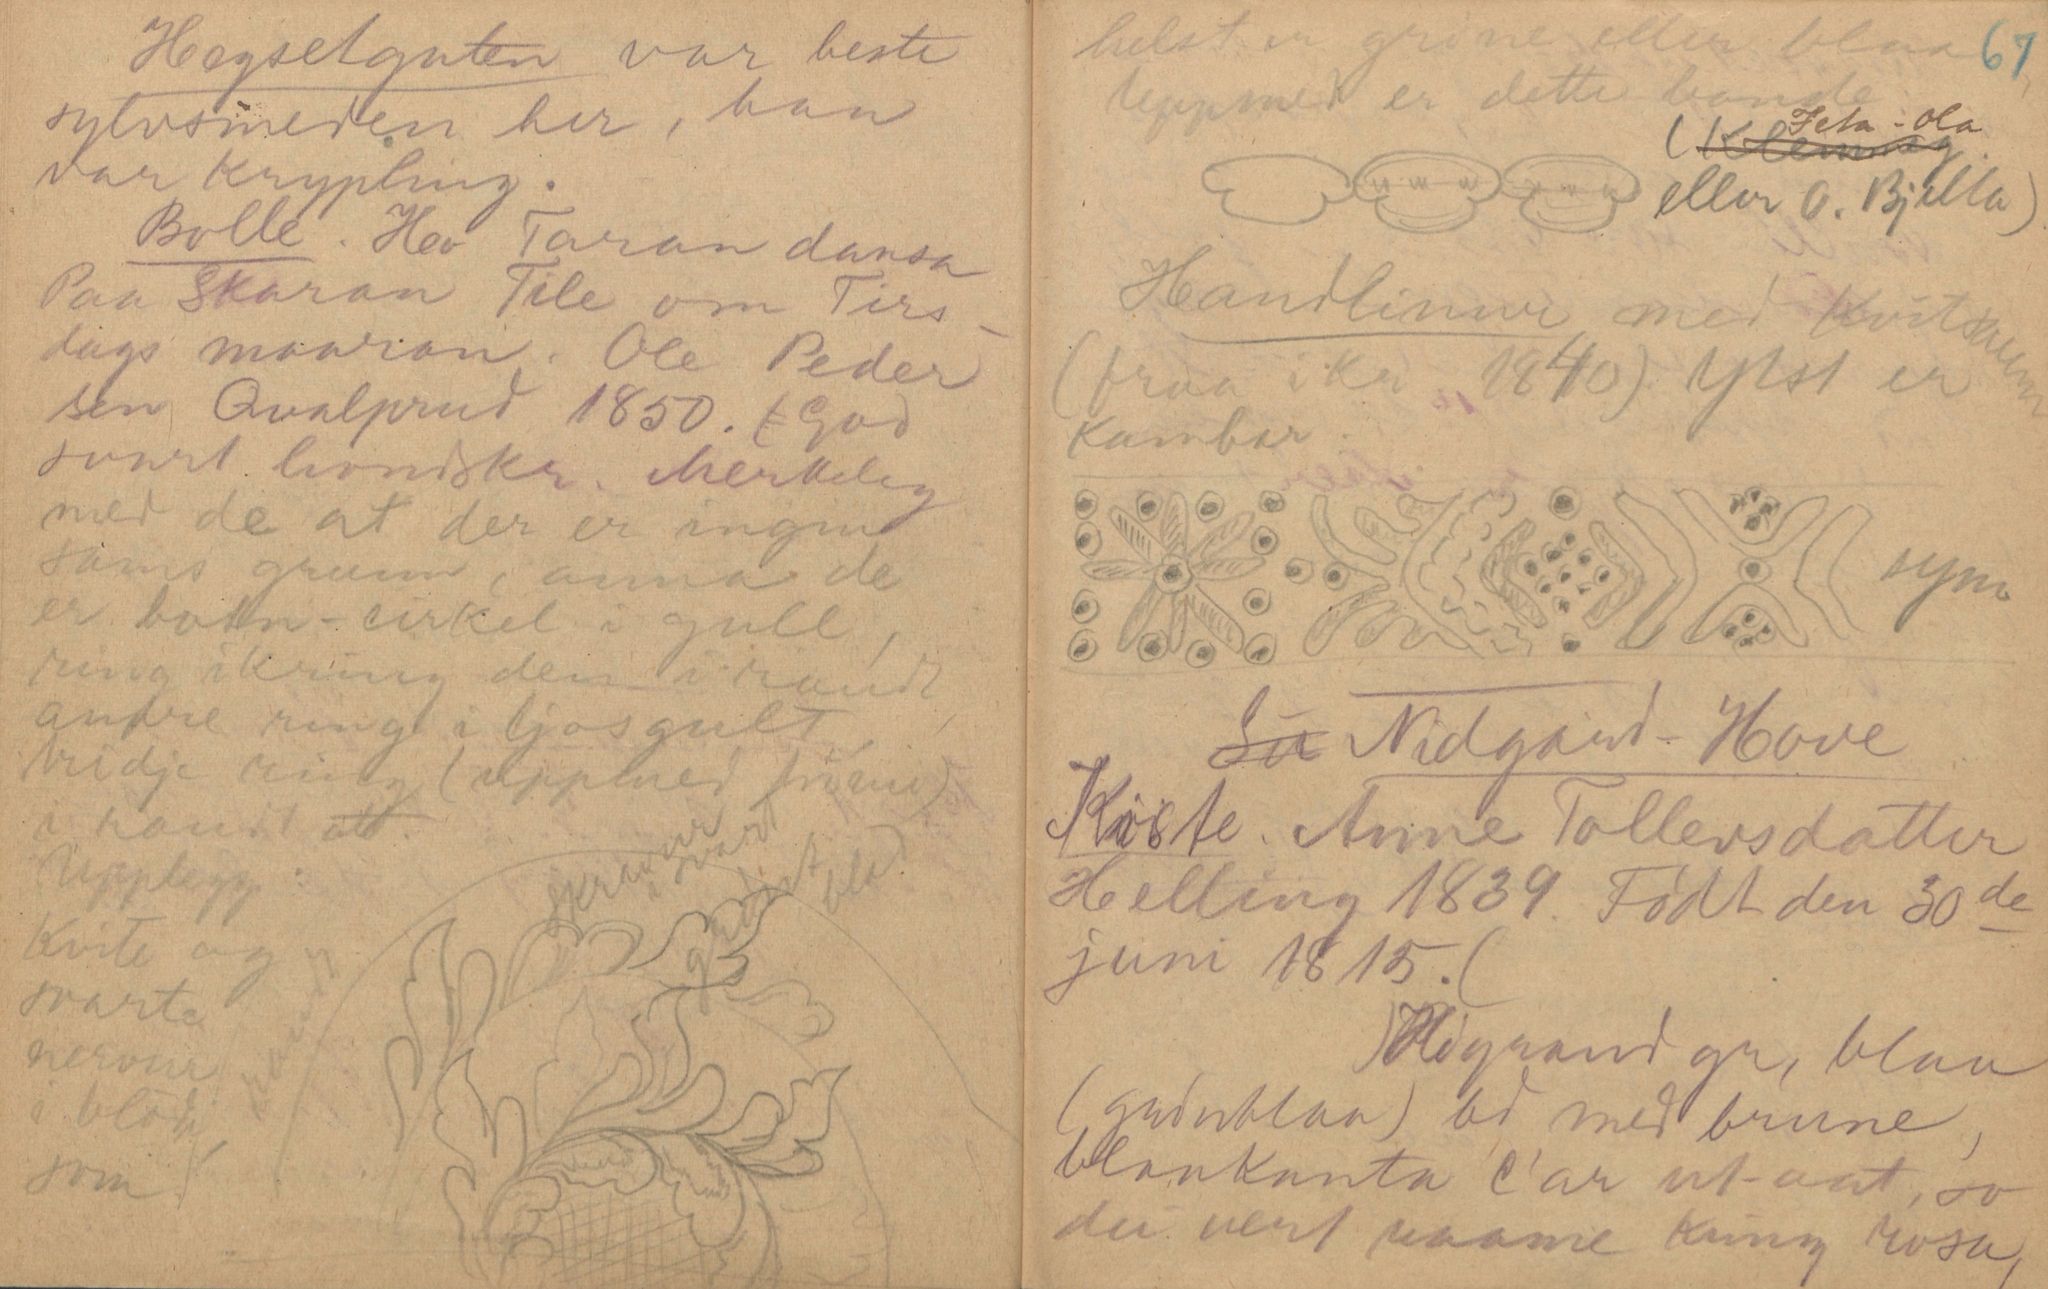 Hegsetguten var beste
sylvsmeden her, han
var krypling.
Bolle. Hev Taran dansa
Paa Skaran Tile om Tirs-
dags maaran. Ole Peder
sen Qvalprud 1850. (God
svart bondskr. Merkeleg
med de at der er ingen
sams grunn, anna de
er botn-cirkel i gull,
ring ikring den i raudt,
andre ring i ljosgult,
tridje ring (uppmed)
i raudt att.
Upplegg:
Kvite og
svarte
nervur
i blod
som
skravur
i svart
grønt
blad
67
helst er grøne eller blaa
Uppmed er dette bande
Feta-Ola
(
eller O. Bjella)
Handlinur med kvitsaum
(fraa ikr. 1840) Ytst er
Kambar.
sym.
Nidgard-Hove
Kiste. Anne Tollevsdatter
Helling 1839. Født den 30de
juni 1815. (
gr, blaa
(grønblaa) bd med brune,
blaakanta C'ar ut-aat, so
dei vert raame kring rosa,